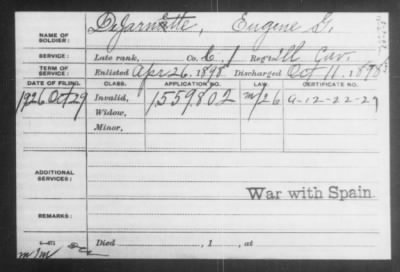 NAME OF SOLDIER: DeJarnette, Eugene G.
SERVICE: Late rank, Co. C, 1 Reg't Ill Cav.
TERM OF SERVICE: Enlisted Apr 26, 1898, Discharged Oct 11, 1898
DATE OF FILING. CLASS. APPLICATION NO. LAW. CERTIFICATE NO.
1926 Oct 29 Invalid, 1559802 26 a-12-22-27
Widow,
Minor,
ADDITIONAL SERVICES:
War with Spain.
REMARKS:
Died , 1 , at